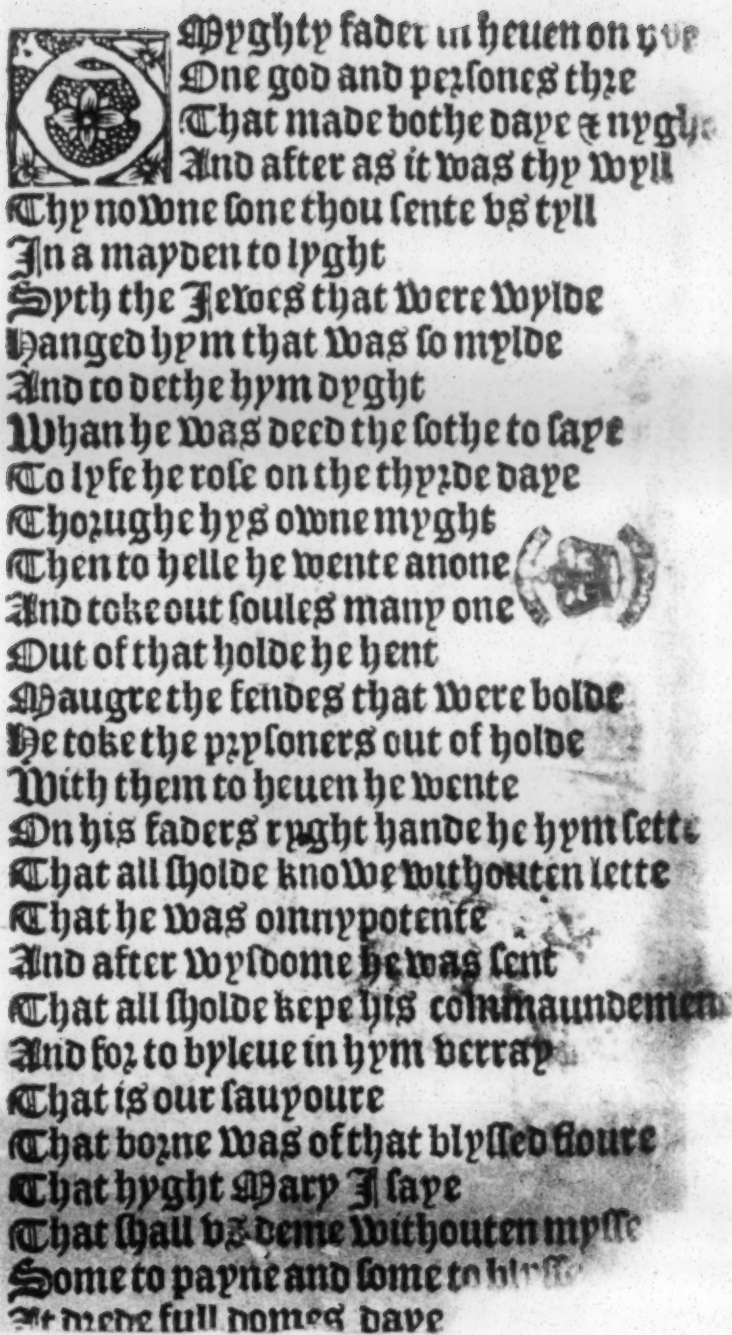 OMyghty fader in heuen on hye
One god and persones thre
That made bothe daye & nyght
And after as it was thy wyll
Thy nowne sone thou sente vs tyll
In a mayden to lyght
Syth the Jewes that were wylde
Hanged hym that was so mylde
And to dethe hym dyght
Whan he was deed the sothe to saye
To lyfe he rose on the thyrde daye
Thorughe hys owne myght
Then to helle he wente anone
And toke out soules many one
Out of that holde he hent
Maugre the fendes that were bolde
He toke the prysoners out of holde
With them to heuen he wente
On his faders ryght hande he hym sette
That all sholde knowe withouten lette
That he was omnypotente
And after wysdome he was sent
That all sholde kepe his commaundemen
And for to byleue in hym verray
That is our sauyoure
That borne was of that blyssed floure
That hyght Mary I saye
That shall vs deme withouten mysse
Some to payne and some to blysse
At drede full domes daye